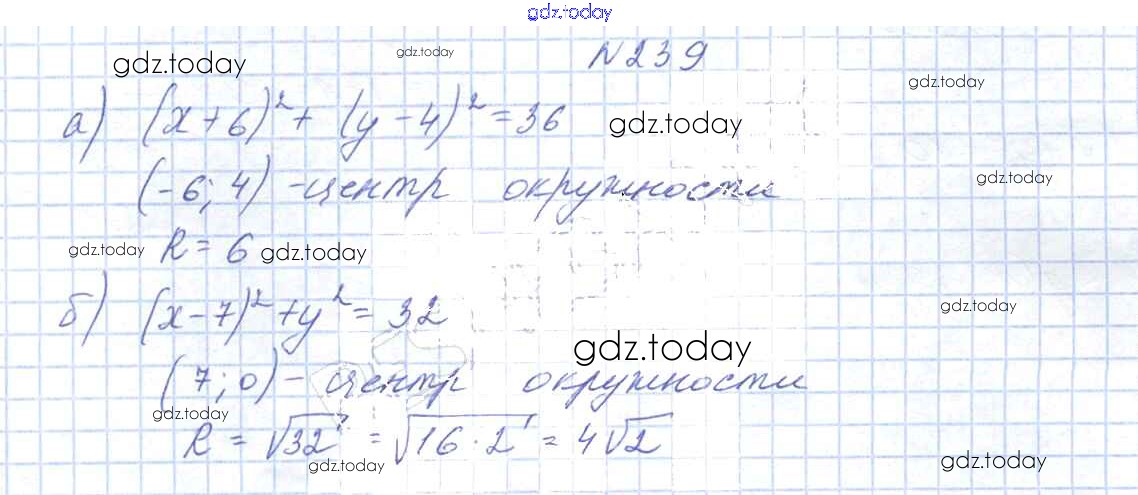 gdz.today
gdz.today gdz.today № 239
gdz.today
а) (x + 6)² + (y - 4)² = 36 gdz.today
(-6; 4) - центр окружности gdz.today
gdz.today R = 6 gdz.today
б) (x - 7)² + y² = 32 gdz.today
gdz.today
(7; 0) - центр окружности
gdz.today
R = √32 = √16 · 2 = 4√2
gdz.today gdz.today